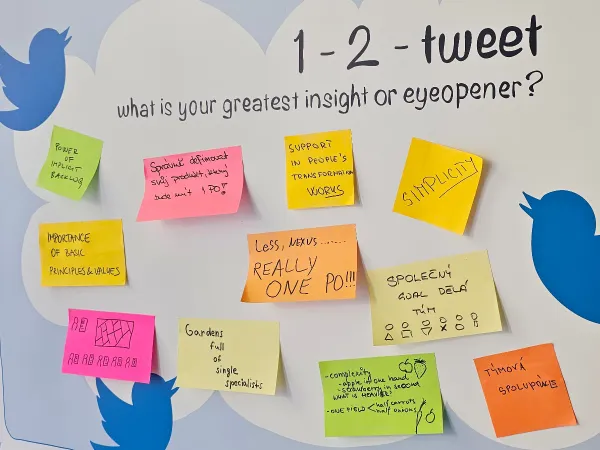 1 - 2 - tweet
what is your greatest insight or eyeopener?
POWER
OF
IMPLICIT
BACKLOG
Správně definovat
svůj produkt, který
bude mít 1 PO!
SUPPORT
IN PEOPLE'S
TRANSFORMATION
WORKS
SIMPLICITY
IMPORTANCE
OF BASIC
PRINCIPLES & VALUES
LESS, NEXUS......
REALLY
ONE PO!!!
SPOLEČNÝ
GOAL DĚLÁ
TÝM
Gardens
full
of
single
specialists
- complexity
- apple in one hand
- strawberry in second
WHAT IS HEAVIER?
- ONE FIELD < half carrots
half onions
TÝMOVÁ
SPOLUPRÁCE